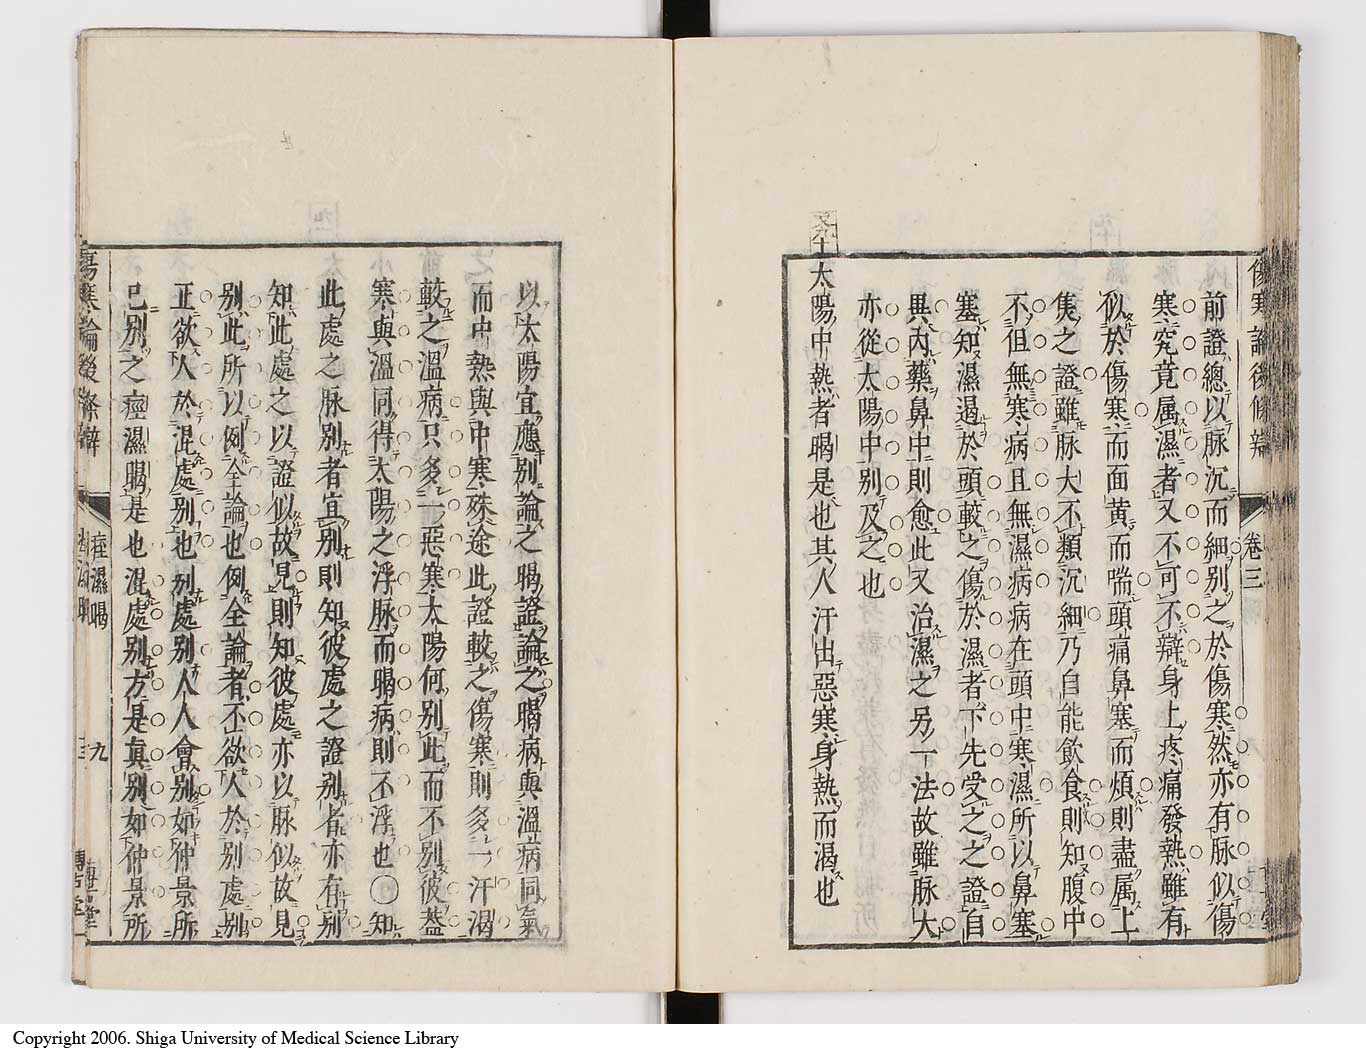 傷寒論後條辨
卷三
前證總以脉沉而細別之於傷寒然亦有脉似傷
寒究竟属濕者又不可不辯身上疼痛發熱雖有
似於傷寒而面黄而喘頭痛鼻塞而煩則盡属上
焦之證雖脉大不類沉細乃自能飲食則知腹中
不但無寒病且無濕病病在頭中寒濕所以鼻塞
塞知濕遏於頭較之傷於濕者下先受之之證自
異內藥鼻中則愈此又治濕之另一法故雖脉大
亦從太陽中別及之也
太陽中熱者暍是也其人汗出惡寒身熱而渴也
以太陽宜應別論之暍證論之暍病與溫病同氣
而中熱與中寒殊途此證較之傷寒則多一汗渴
較之溫病只多一惡寒太陽何別此而不別彼蓋
寒與溫同得太陽之浮脉而暍病則不浮也〇知
此處之脉別者宜別則知彼處之證別者亦有別
知此處之以證似故見則知彼處亦以脉似故見
別此所以例全論也例全論者不欲人於別處別
正欲人於混處別也別處別人人會別如仲景所
已別之痙濕暍是也混處別方是真別如仲景所
傷寒論後條辨
痙濕暍
九